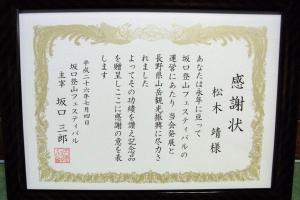 感謝状
松木 靖 様
あなたは永年に亘って
坂口登山フェスティバルの
運営にあたり 当会発展と
長野県山岳観光振興に尽力さ
れました
よってその功績を讃え記念品
を贈呈しここに感謝の意を表
します
平成二十六年七月四日
坂口登山フェスティバル
主宰 坂口 三郎